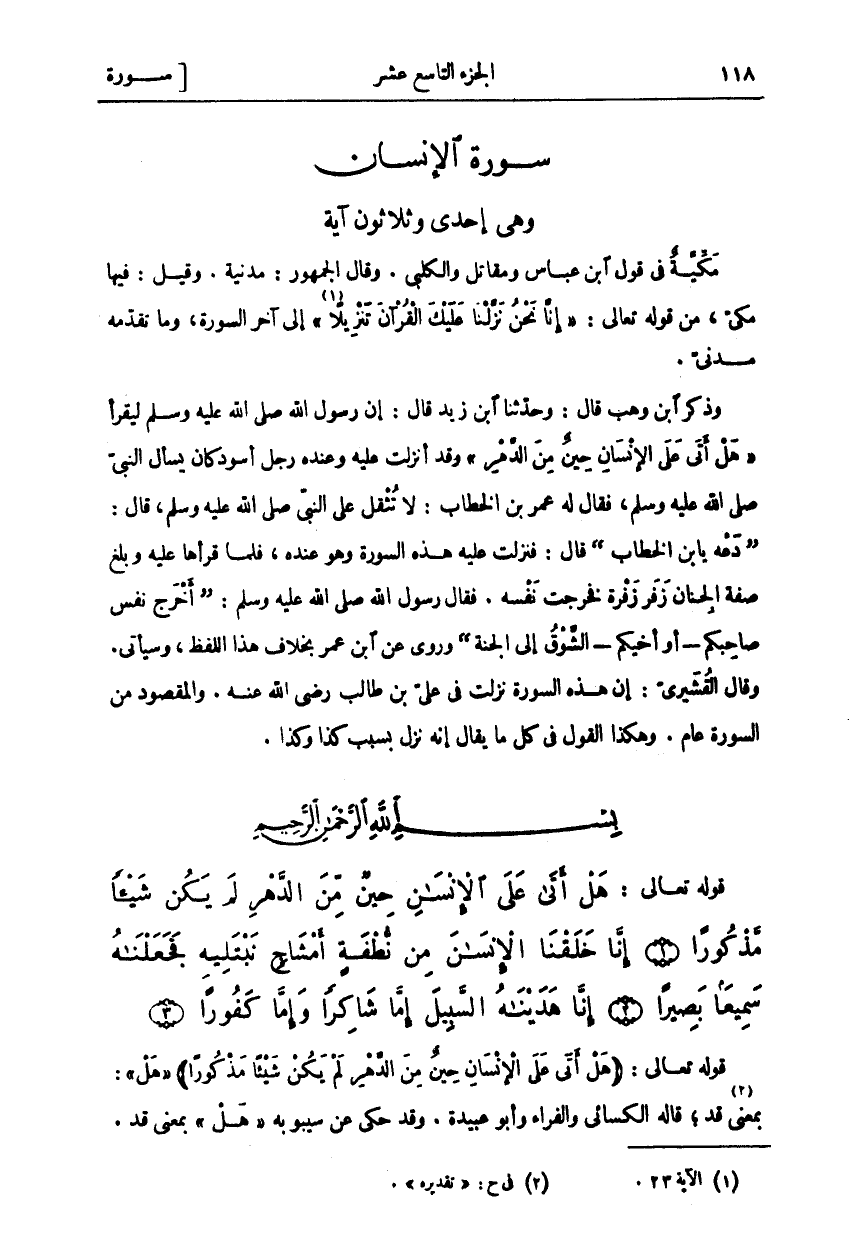 ١١٨ الجزء التاسع عشر [ ســورة
ســورة ٱلإنســان
وهى إحدى وثلاثون آية
مَكّيَّةٌ فى قول آبن عبــاس ومقاتل والكلبي . وقال الجمهور : مدنية . وقيــل : فيها
مكىّ ، من قوله تعالى : « إِنَّا نَحْنُ نَزَّلْنَا عَلَيْكَ الْقُرْآنَ تَنْزِيلًا (١) » إلى آخر السورة، وما تقدّمه
مــدنىّ .
وذكر آبن وهب قال : وحدّثنا آبن زيد قال : إن رسول الله صلى الله عليه وسـلم ليقرأ
« هَلْ أَتَى عَلَى الإنْسَانِ حِينٌ مِنَ الدَّهْرِ » وقد أنزلت عليه وعنده رجل أسود كان يسأل النبىّ
صلى الله عليه وسلم، فقال له عمر بن الخطاب : لا تُثْقل على النبىّ صلى الله عليه وسلم، قال :
” دَعْه يابن الخطاب “ قال : فنزلت عليه هــذه السورة وهو عنده ، فلمــا قرأها عليه وبلغ
صفة الجنان زَفَر زَفْرة فخرجت نَفْسه . فقال رسول الله صلى الله عليه وسلم : ” أَخْرَج نفس
صاحِبكم — أو أخيكم — الشَّوْقُ إلى الجنة “ وروى عن آبن عمر بخلاف هذا اللفظ ، وسيأتى.
وقال القُشَيْرىّ : إن هــذه السورة نزلت فى علىّ بن طالب رضى الله عنــه . والمقصود من
السورة عام . وهكذا القول فى كل ما يقال إنه نزل بسبب كذا وكذا .
بِسْــمِ ٱللَّهِ ٱلرَّحْمَٰنِ ٱلرَّحِيمِ
قوله تعـالى : هَلْ أَتَىٰ عَلَى ٱلْإِنسَـٰنِ حِينٌ مِّنَ الدَّهْرِ لَمْ يَكُن شَيْـًٔا
مَّذْكُورًا ۝١ إِنَّا خَلَقْنَا الْإِنسَـٰنَ مِن نُّطْفَةٍ أَمْشَاجٍ نَّبْتَلِيهِ فَجَعَلْنَـٰهُ
سَمِيعًا بَصِيرًا ۝٢ إِنَّا هَدَيْنَـٰهُ السَّبِيلَ إِمَّا شَاكِرًا وَإِمَّا كَفُورًا ۝٣
قوله تعـالى : ﴿هَلْ أَتَى عَلَى الْإِنْسَانِ حِينٌ مِنَ الدَّهْرِ لَمْ يَكُنْ شَيْئًا مَذْكُورًا﴾ «هَلْ» :
بمعنى قد ؛ قاله الكسائى والفراء وأبو عبيدة . وقد حكى عن سيبويه « هَــلْ » بمعنى قد (٢) .
(١) الآية ٢٣ . (٢) فى ح : « تقديره » .